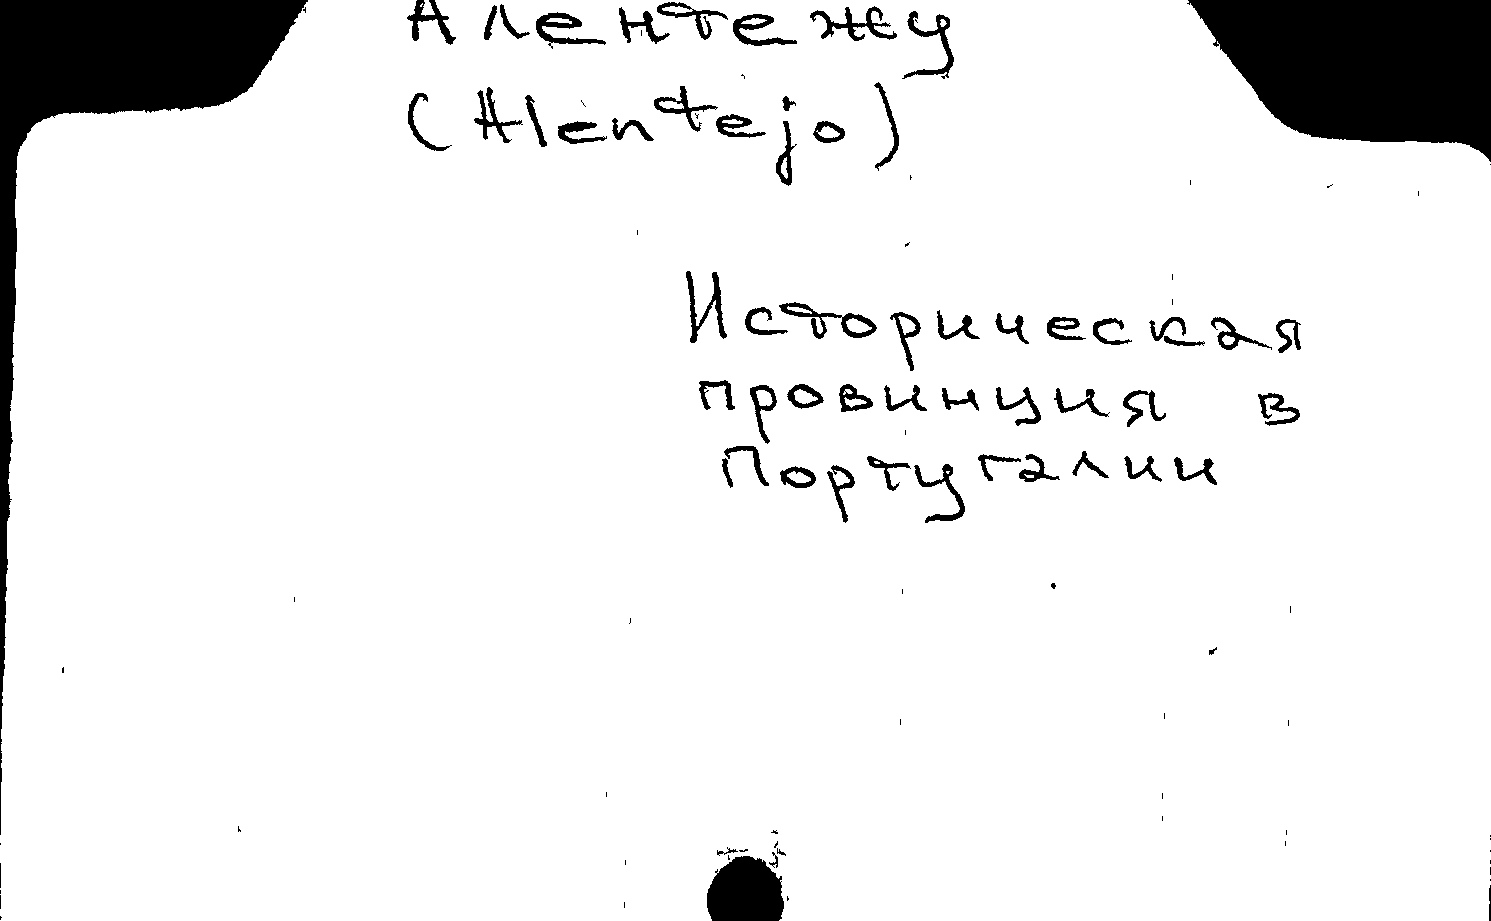 Алентежу
(Alentejo)
Историческая
провинция в
Португалии